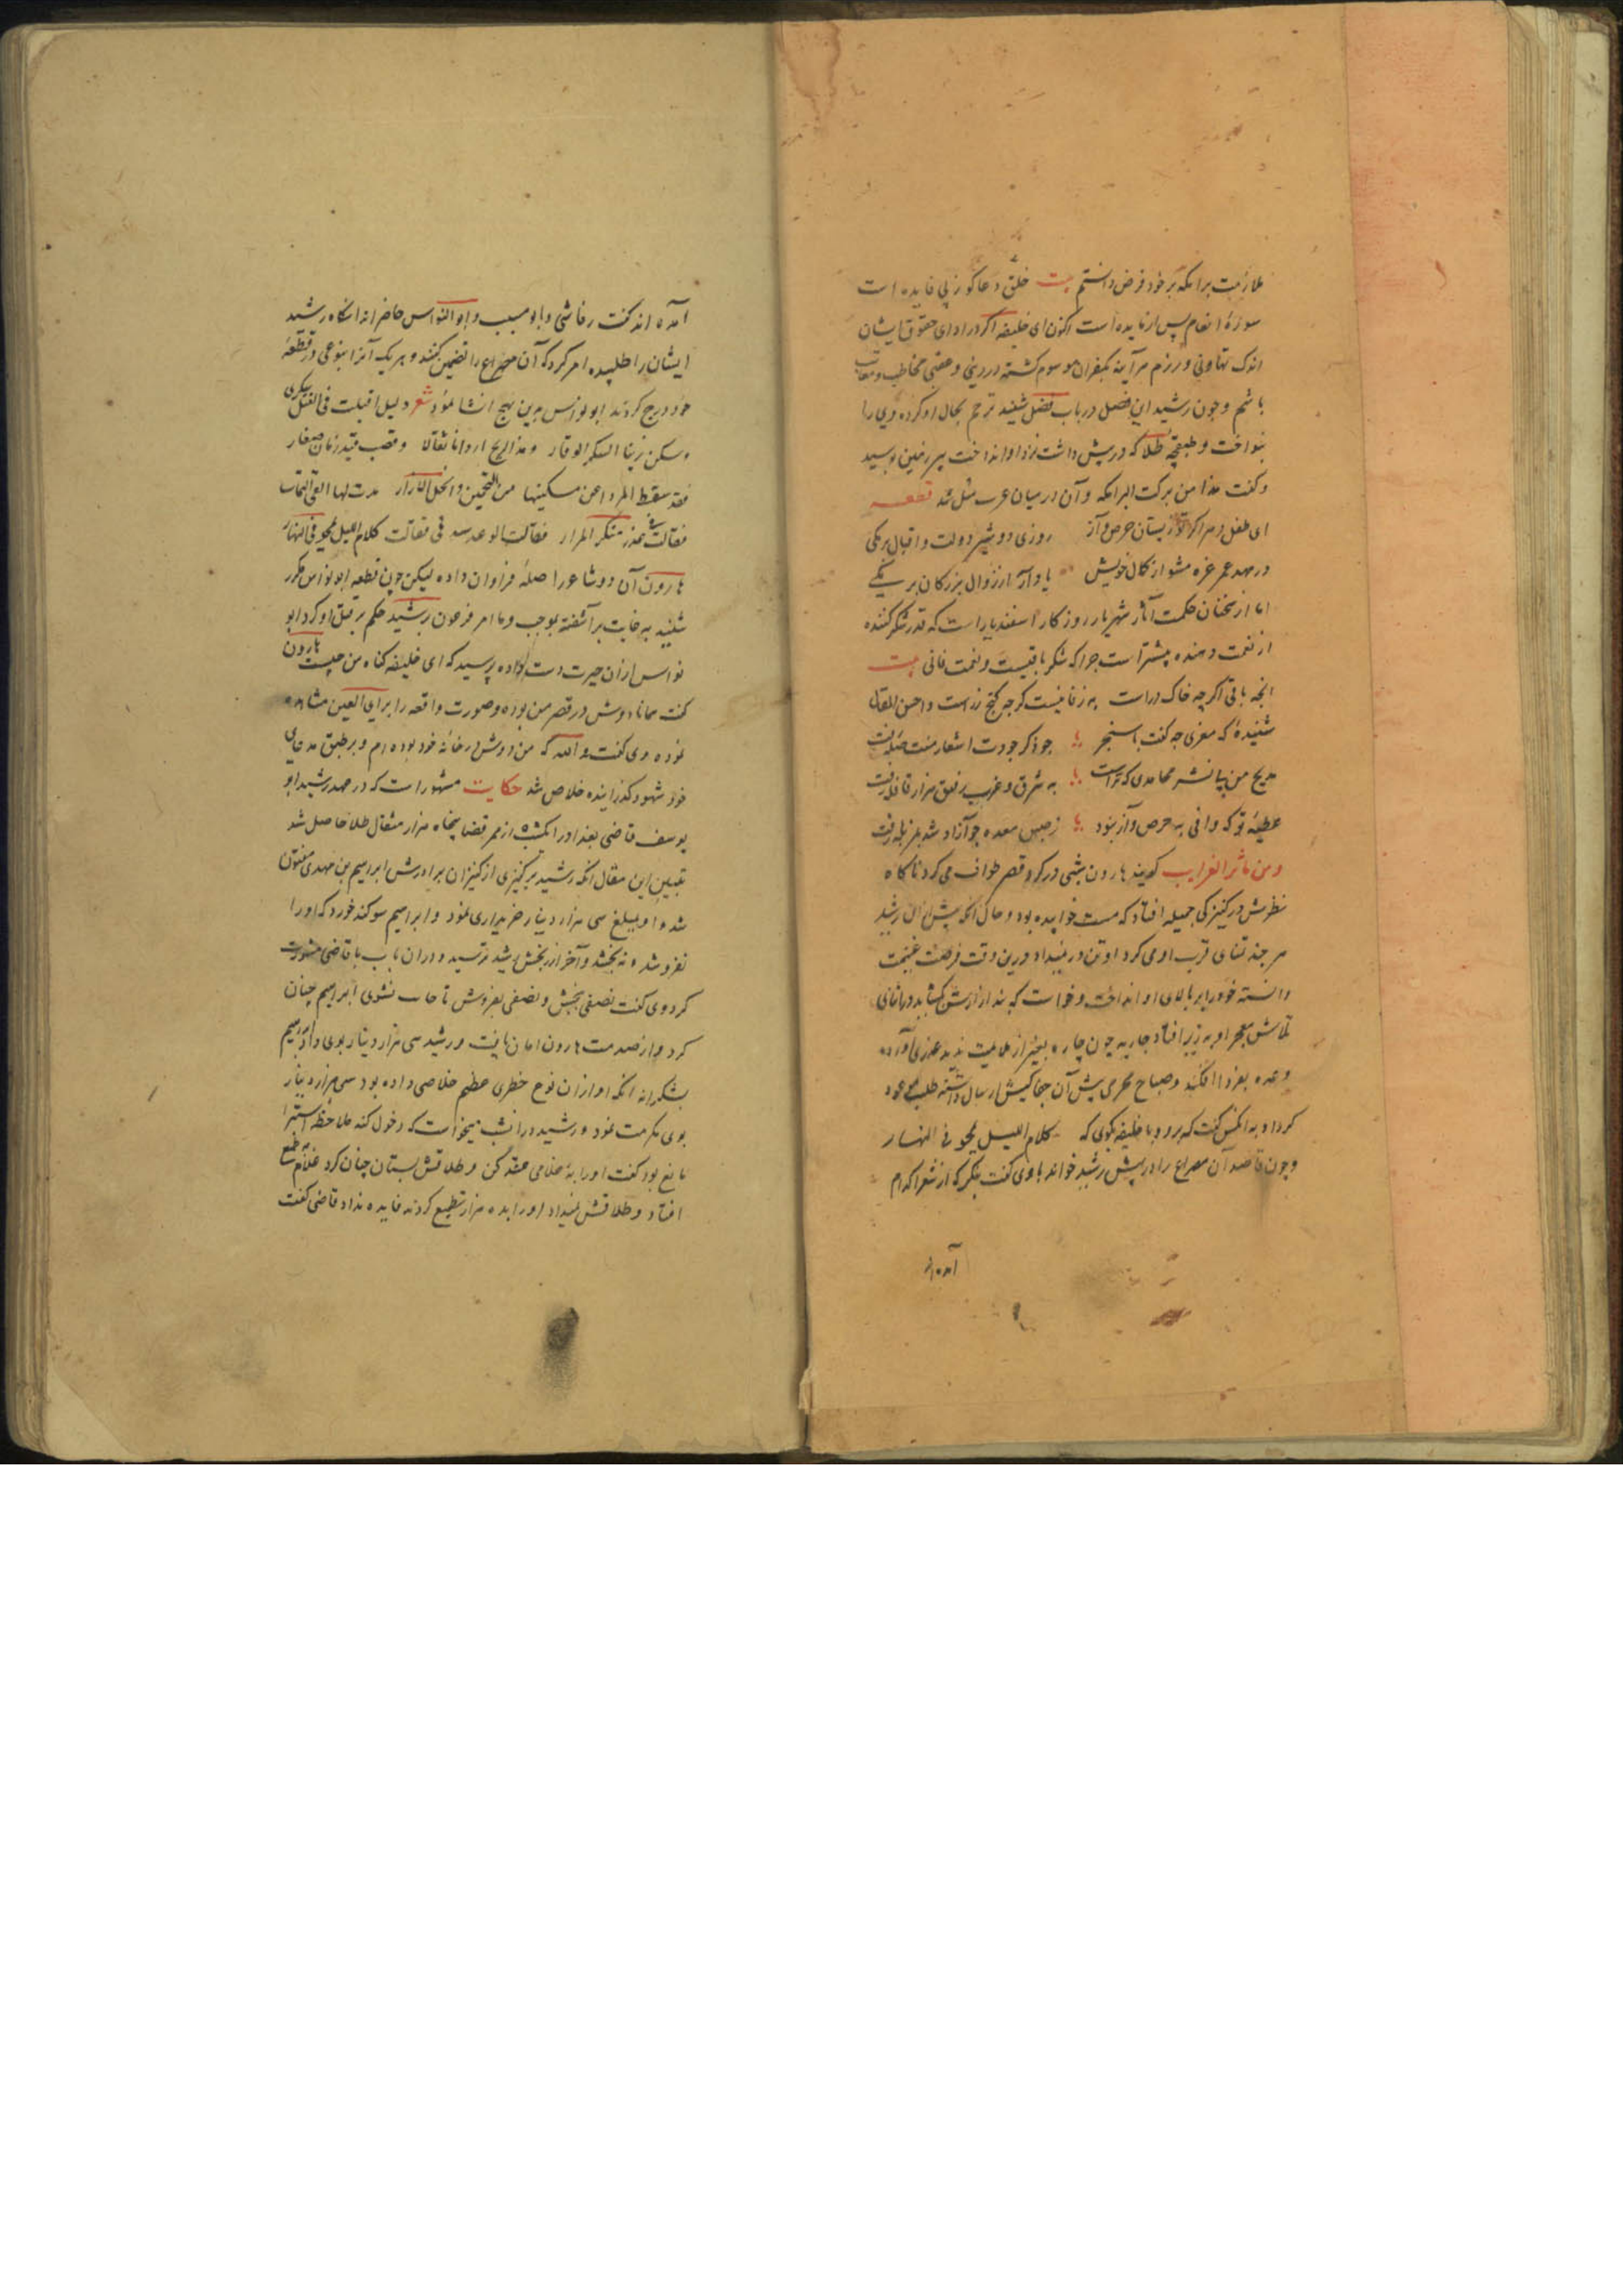 ملازمت برامکه بر خود فرض دانستم بیت خلق دعاکو ز پی فایده است
سوزهٔ انعام پس از مایده است اکنون ای خلیفه اکر در ادای حقوق ایشان
اندک تهاونی ورزم هر آینه بکفران موسوم کشته در دنیی و عقبی مخاطب و معاتب
باشم و چون رشید این فصل در باب فضل شنید ترحم بحال او کرده وی را
بنواخت و طبقچه طلا که در پیش داشت نزد او انداخت پیر زمین بوسید
و کفت هذا من برکت البرامکه و آن در میان عرب مثل شد قطعه
ای طفل دهر اکر تو ز پستان حرص و آز روزی دو شیر دولت و اقبال برمکی
در مهد عمر غره مشو از کمال خویش یاد آر از زوال بزرکان برمکی
اما از سخنان حکمت آثار شهریار روزکار اسفندیار است که قدر شکر کننده
از نعمت دهنده بیشتر است چرا که شکر باقیست و نعمت فانی بیت
انچه باقی اکر چه خاک دراست به ز فانیست کر چه کنج زر است و احسن المقال
شنیدهٔ که معزی چه کفت با سنجر چو ذکر جودت اشعار منت صله رفت
مدیح من پی نشر محامدی که تراست به شرق و غرب رفیق هزار قافله رفت
عطیهٔ تو که وافی به حرص و آز نبود ز حبس معده چو آزاد شد بمزبله رفت
و من ماثر الغرایب کویند هارون شبی در کرد قصر طواف می کرد ناکاه
نظرش در کنیزکی جمیله افتاد که مست خوابیده بود و حال آنکه پیش ازان رشید
هر چند تمنای قرب او می کرد او تن در نمیداد درین وقت فرصت غنیمت
دانسته خود را بر بالای او انداخت و خواست که بند ازارش کشاید در اثنای
تلاش معجر او به زیر افتاد جاریه چون چاره بغیر از ملایمت ندید عذری آورده
وعده بفردا افکند و صباح محرمی پیش آن جفا کیش ارسال داشته طلب موعود
کرد او به آنکس کفت که برو و با خلیفه بکوی که کلام اللیل یمحو فی النهار
و چون قاصد آن مصراع را در پیش رشید خواند هاوی کفت بنکر که از شعرا کدام
آمده اند
آمده اند کفت رقاشی و ابو مسیب و ابو النواس حاضر اند انکاه رشید
ایشان را طلبیده امر کرد که آن مصراع را تضمین کنند و هر یک آنرا بنوعی در قطعهٔ
خود درج کردند ابو نواس بدین نهج انشا نمود شعر و لیل اقبلت فی القصر سکری
و سکن زینا السکر الوقار و هذا الریح اردافا ثقالا و قصب قیه رمان صغار
فقد سقط الردا عن منکبیها من التجمیش و انحل الازار
فقالت فی غد فقالت الوعد سیدی فقالت کلام اللیل یمحو فی النهار
هارون آن دو شاعر را صلهٔ فراوان داده لیکن چون قطعه ابو نواس مکرر
شنید به غایت بر آشفته بموجب و ما امر فرعون برشید حکم بر قتل او کرد ابو
نواس ازان حیرت دست داده پرسید که ای خلیفه کناه من چیست هارون
کفت همانا دوش در قصر من بوده و صورت واقعه را برای العین مشاهده
نموده وی کفت والله که من دوش در خانه خود بوده ام و بر طبق مدعای
خود شهود کذرانیده خلاص شد حکایت مشهور است که در عهد رشید ابو
یوسف قاضی بغداد را یکشبه از ممر قضا پنجاه هزار مثقال طلا حاصل شد
تبیین این مقال آنکه رشید بر کنیزی از کنیزان برادرش ابراهیم بن مهدی مفتون
شد و او بمبلغ سی هزار دینار خریداری نمود و ابراهیم سوکند خورد که او را
نفروشد و نه بخشد و آخر از رنجش رشید ترسید و دران باب با قاضی مشورت
کرد وی کفت نصفی ببخش و نصفی بفروش تا حانث نشوی ابراهیم چنان
کرد و از صدمت هارون امان یافت و رشید سی هزار دینار بوی داد ابراهیم
بشکرانه آنکه او از ان نوع خطری عظیم خلاصی داده بود سی هزار دینار
بوی مکرمت نمود و رشید در انشب میخواست که دخول کند ملاحظه استبرا
مانع بود کفت او را به غلامی عقد کن و طلاقش بستان چنان کرد غلام به طمع
افتاد و طلاقش نمیداد او را به ده هزار تطمیع کردند فایده نداد قاضی کفت